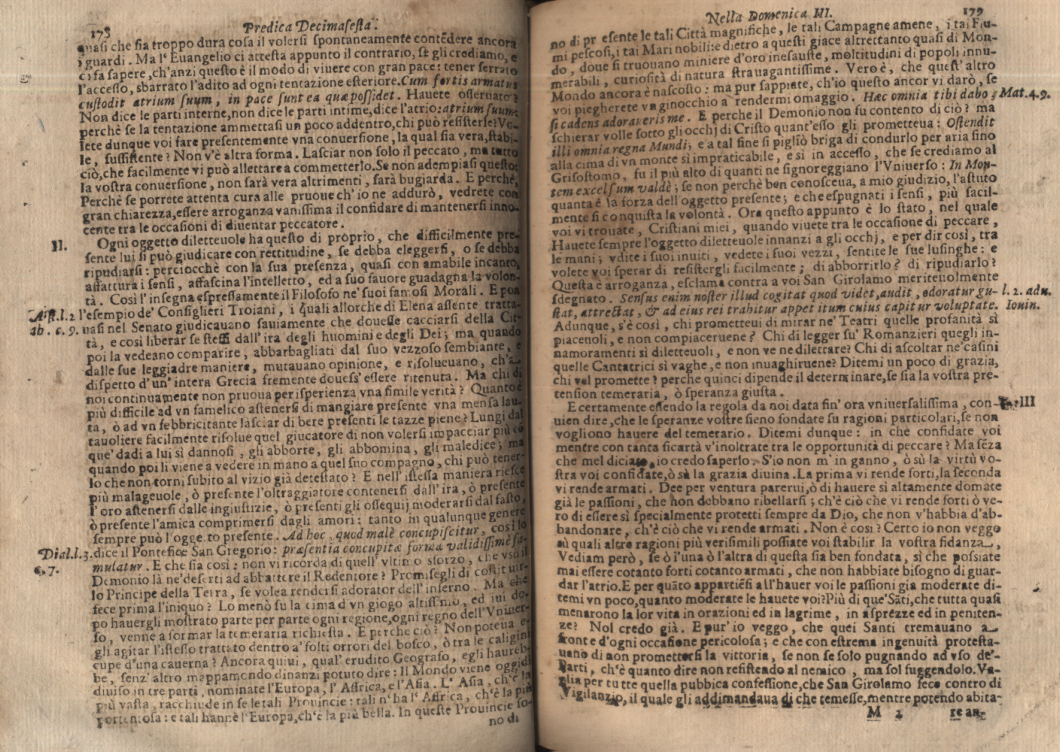 178 Predica Decimasesta.
quasi che sia troppo dura cosa il volersi spontaneamente contẽdere ancora
i guardi. Ma l'Euangelio ci attesta appunto il contrario, se gli crediamo, e
ci fa sapere, ch'anzi questo è il modo di viuere con gran pace: tener serrato
l'accesso, sbarrato l'adito ad ogni tentazione esteriore. Cum fortis armatus
custodit atrium suum, in pace sunt ea quæ possidet. Hauete osseruato?
Non dice le parti interne, non dice le parti intime, dice l'atrio: atrium suum:
perchè se la tentazione ammettasi un poco addentro, chi può resistere? Vo-
lete dunque voi fare presentemente vna conuersione, la qual sia vera, stabi-
le, sussistente? Non v'è altra forma. Lasciar non solo il peccato, ma tutto
ciò, che facilmente vi può allettare a commetterlo. Se non adempiasi questo:
la vostra conuersione, non sarà vera altrimenti, sarà bugiarda. E perchè,
Perchè se porrete attenta cura alle pruoue ch'io ne addurò, vedrete con
gran chiarezza, essere arroganza vanissima il confidare di mantenersi inno-
cente tra le occasioni di diuentar peccatore.
II. Ogni oggetto diletteuole ha questo di proprio, che difficilmente pre-
sente lui si può giudicare con rettitudine, se debba eleggersi, o se debba
ripudiarsi: perciocchè con la sua presenza, quasi con amabile incanto,
affattura i sensi, affascina l'intelletto, ed a suo fauore guadagna la volon-
tà. Così l'insegna espressamente il Filosofo ne' suoi famosi Morali. E pon
Arist. l. 2 l'esempio de' Consiglieri Troiani, i quali allorche di Elena assente tratta-
ab. c. 9. uasi nel Senato giudicauano sauiamente che douesse cacciarsi della Cit-
tà, e così liberar se stessi dall'ira degli huomini e degli Dei; ma quando
poi la vedeano comparire, abbarbagliati dal suo vezzoso sembiante, e
dalle sue leggiadre maniere, mutauano opinione, e risolueuano, ch'a
dispetto d'un' intera Grecia fremente douess' essere ritenuta. Ma chi di
noi continuamente non pruoua per isperienza vna simile verità? Quanto è
più difficile ad vn famelico astenersi di mangiare presente vna mensa lau-
ta, ò ad vn febbricitante lasciar di bere presenti le tazze piene? Lungi dal
tauoliere facilmente risolue quel giucatore di non volersi impacciar più co
que' dadi a lui sì dannosi, gli abborre, gli abbomina, gli maledice; ma
quando poi li viene a vedere in mano a quel suo compagno, chi può tener-
lo che non torni subito al vizio già detestato? E nell'istessa maniera riesce
più malageuole, ò presente l'oltraggiatore contenersi dall'ira, ò presente
l'oro astenersi dalle ingiustizie, ò presenti gli ossequij moderarsi dal fasto,
ò presente l'amica comprimersi dagli amori: tanto in qualunque genere
sempre può l'oggetto presente. Ad hoc, quod malè concupiscitur, così lo
Dial. l. 3. dice il Pontefice San Gregorio: præsentia concupitæ formæ validissimè fa-
c. 7. mulatur. E che sia così: non vi ricorda di quell'vltimo sforzo, che vsò il
Demonio là ne' deserti ad abbattere il Redentore? Promisegli di costituir-
lo Principe della Terra, se volea rendersi adorator dell'inferno. Ma che
fece prima l'iniquo? Lo menò su la cima d'vn giogo altissimo, ed iui do-
po hauergli mostrato parte per parte ogni regione, ogni regno dell'Vniuer-
so, venne a formar la temeraria richiesta. E perche ciò? Non poteua e-
gli agitar l'istesso trattato dentro a' folti orrori del bosco, ò tra le caligini
cupe d'una cauerna? Ancora quiui, qual' erudito Geografo, egli haureb-
be, senz' altro mappamondo dinanzi potuto dire: Il Mondo viene oggidì
diuiso in tre parti, nominate l'Europa, l'Affrica, e l'Asia. L'Asia, ch'è la
più vasta, racchiude in se le tali Prouincie: tali n'ha l'Affrica, ch'è la più
portentosa: e tali hanne l'Europa, ch'è la più bella. In queste Prouincie so-
no di
Nella Domenica III. 179
no di presente le tali Città magnifiche, le tali Campagne amene, i tai Fiu-
mi pescosi, i tai Mari nobili: e dietro a questi giace altrettanto quasi di Mon-
do, doue si truouano miniere d'oro inesauste, moltitudini di popoli innu-
merabili, curiosità di natura strauagantissime. Vero è, che quest' altro
Mondo ancora è nascosto: ma pur sappiate, ch'io questo ancor vi darò, se
voi piegherete vn ginocchio a rendermi omaggio. Hæc omnia tibi dabo; Mat. 4. 9.
si cadens adoraueris me. E perche il Demonio non fu contento di ciò? ma
schierar volle sotto gli occhj di Cristo quant'esso gli prometteua: Ostendit
illi omnia regna Mundi; e a tal fine si pigliò briga di condurlo per aria fino
alla cima di vn monte sì impraticabile, e sì in accesso, che se crediamo al
Grisostomo, fu il più alto di quanti ne signoreggiano l'Vniuerso: In Mon-
tem excelsum valdè; se non perchè ben conosceua, a mio giudizio, l'astuto
quanta è la forza dell'oggetto presente; e che espugnati i sensi, più facil-
mente si conquista la volontà. Ora questo appunto è lo stato, nel quale
voi vi trouate, Cristiani miei, quando viuete tra le occasione di peccare,
Hauete sempre l'oggetto diletteuole innanzi a gli occhj, e per dir così, tra
le mani; vdite i suoi inuiti, vedete i suoi vezzi, sentite le sue lusinghe: e
volete voi sperar di resistergli facilmente; di abborrirlo? di ripudiarlo?
Questa è arroganza, esclama contra a voi San Girolamo meriteuolmente
sdegnato. Sensus enim noster illud cogitat quod videt, audit, odoratur gu- l. 2. adu.
stat, attrectat, & ad eius rei trahitur appetitum cuius capitur voluptate. Iouin.
Adunque, s'è così, chi promettetui di mirar ne' Teatri quelle profanità sì
piaceuoli, e non compiaceruene? Chi di legger su' Romanzieri quegli in-
namoramenti sì diletteuoli, e non ve ne dilettare? Chi di ascoltar ne' casini
quelle Cantatrici sì vaghe, e non inuaghiruene? Ditemi un poco di grazia,
chi vel promette? perche quinci dipende il determinare, se sia la vostra pre-
tension temeraria, ò speranza giusta.
E certamente essendo la regola da noi data fin' ora vniuersalissima, con- III
uien dire, che le speranze vostre sieno fondate su ragioni particolari, se non
vogliono hauere del temerario. Ditemi dunque: in che confidate voi
mentre con tanta sicartà v'inoltrate tra le opportunità di peccare? Ma sẽza
che mel diciate, io credo saperlo. S'io non m'inganno, ò sù la virtù vo-
stra voi confidate, ò sù la grazia diuina. La prima vi rende forti, la seconda
vi rende armati. Dee per ventura parerui, ò di hauere sì altamente domate
già le passioni, che non debbano ribellarsi; ch'è ciò che vi rende forti ò ve-
ro di essere sì specialmente protetti sempre da Dio, che non v'habbia d'ab-
bandonare, ch'è ciò che vi rende armati. Non è così? Certo io non veggo
sù quali altre ragioni più verisimili possiate voi stabilir la vostra fidanza,
Vediam però, se ò l'una ò l'altra di questa sia ben fondata, sì che possiate
mai essere cotanto forti cotanto armati, che non habbiate bisogno di guar-
dar l'atrio. E per quãto appartiẽsi all'hauer voi le passioni già moderate di-
temi vn poco, quanto moderate le hauete voi? Più di que' Sãti, che tutta quasi
menarono la lor vita in orazioni ed in lagrime, in asprezze ed in peniten-
ze? Nol credo già. E pur' io veggo, che quei Santi tremauano a
fronte d'ogni occasione pericolosa; e che con estrema ingenuità protesta-
uano di non promettersi la vittoria, se non se solo pugnando ad vso de'
Parti, ch'è quanto dire non resistendo al nemico, ma sol fuggendolo. Va-
glia per tutte quella pubblica confessione, che San Girolamo fece contro di
Vigilanzio, il quale gli addimandaua di che temesse, mentre potendo abita-
M 2 re an-